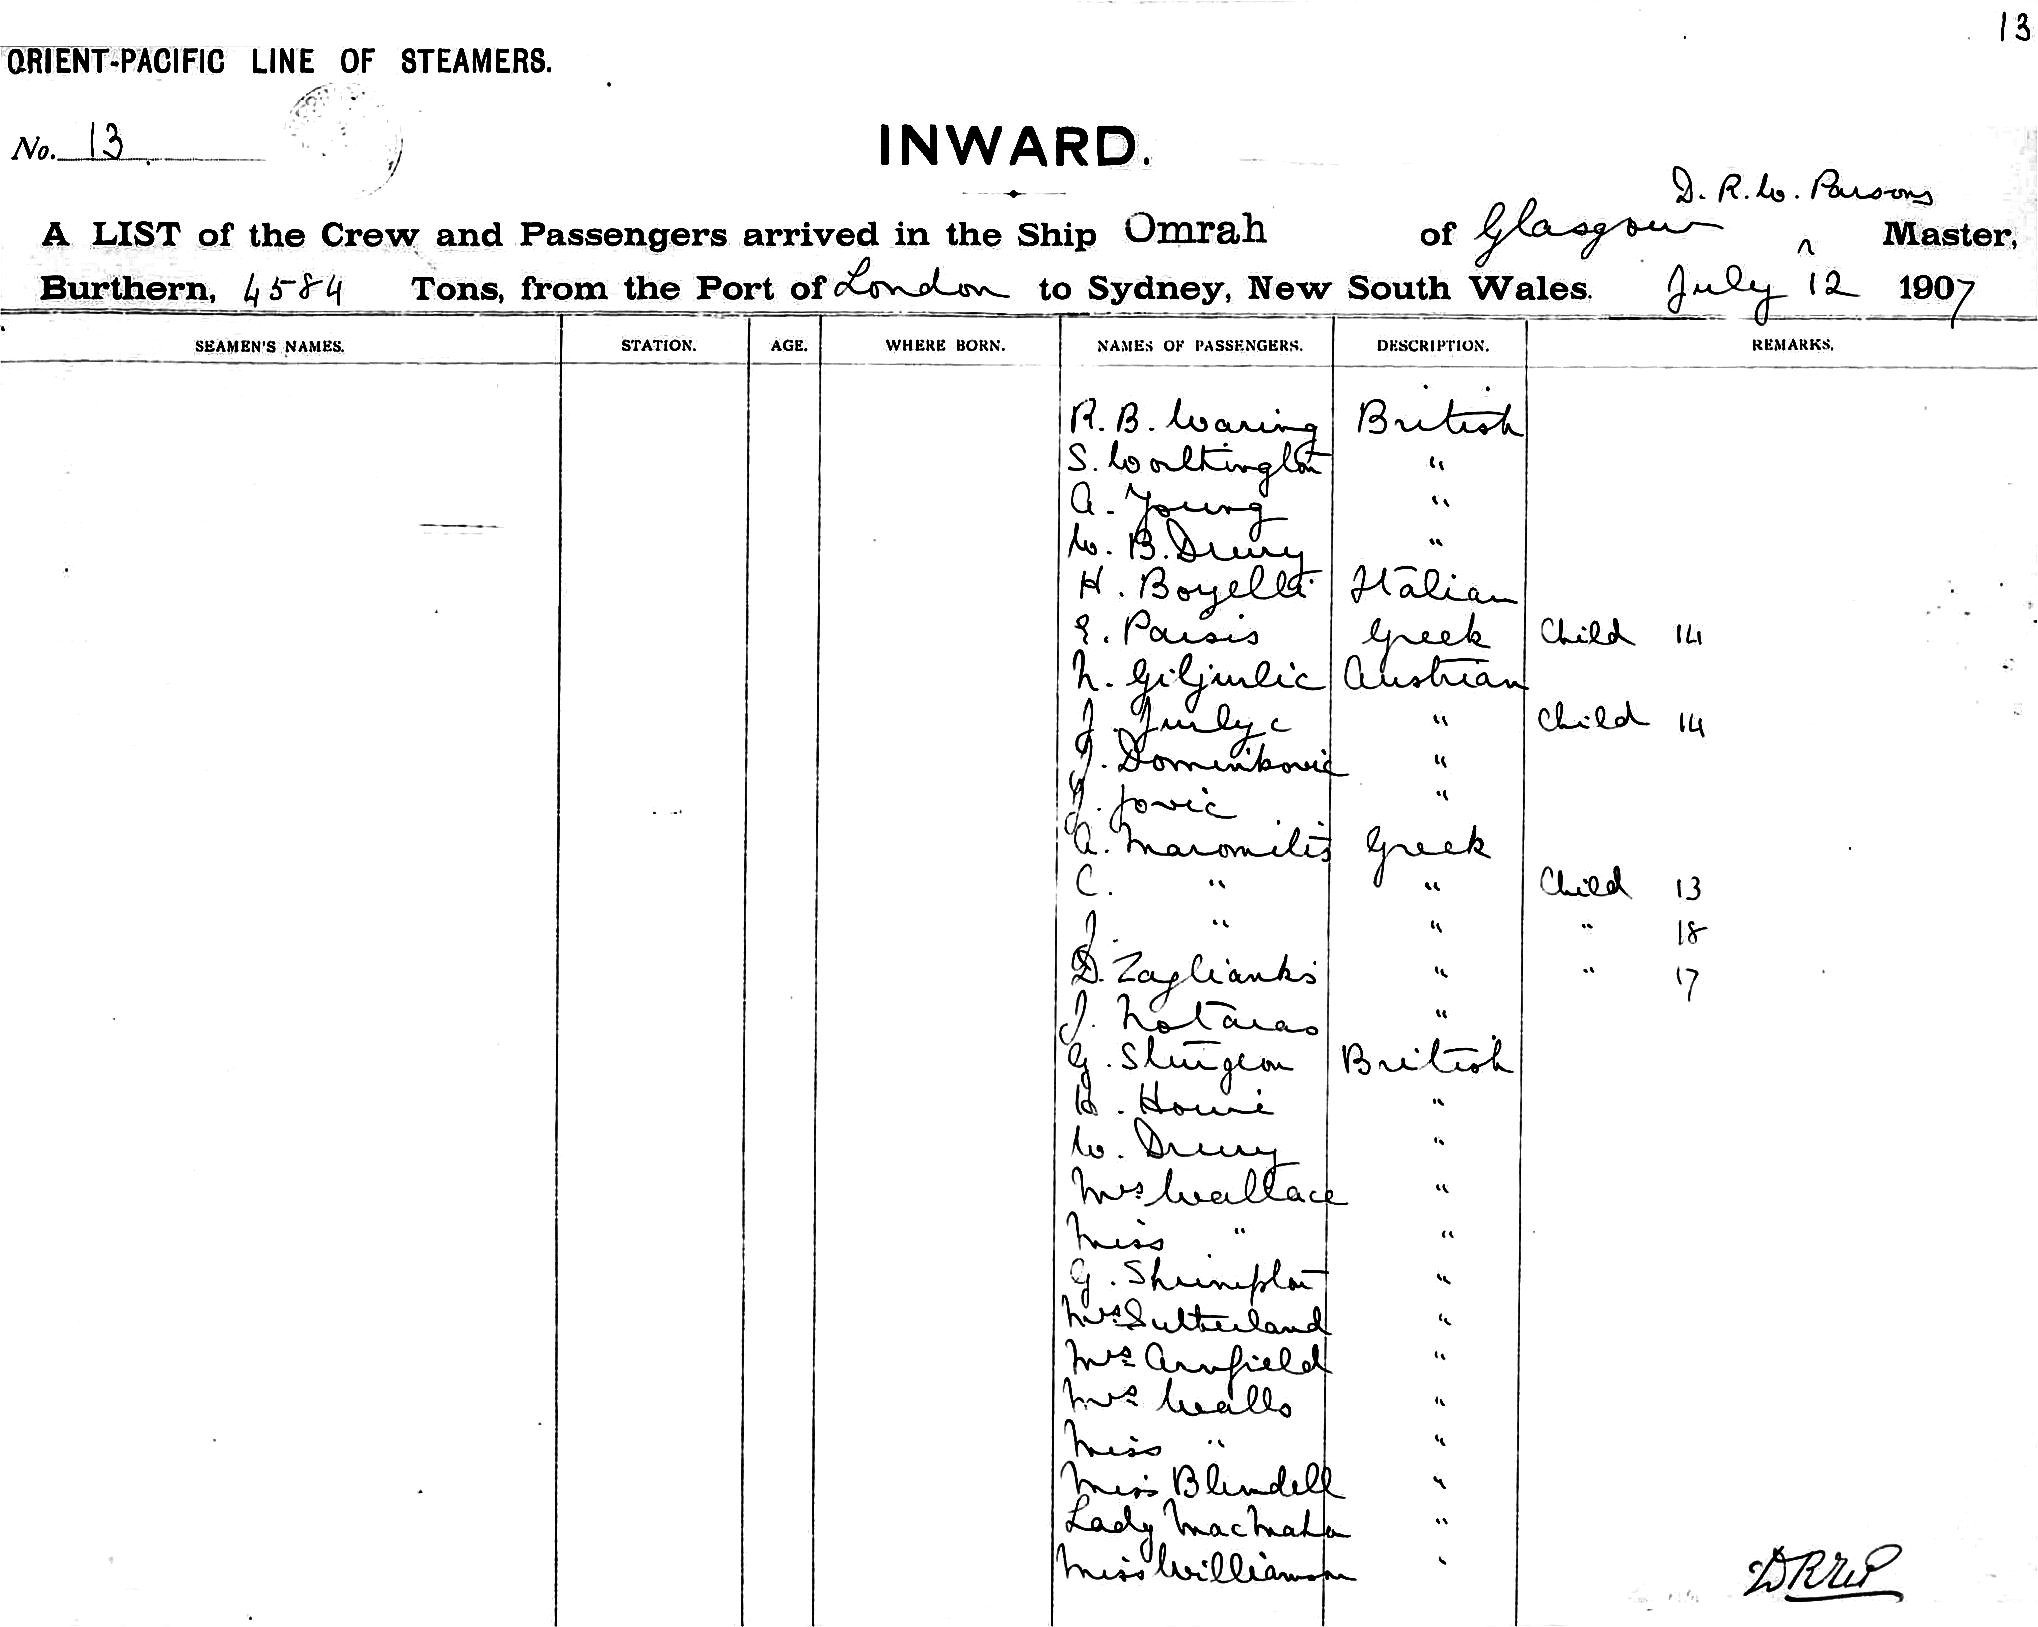 13
ORIENT-PACIFIC LINE OF STEAMERS.
No. 13
INWARD.
D. R. W. Parsons
A LIST of the Crew and Passengers arrived in the Ship Omrah of Glasgow ^ Master,
Burthern, 4584 Tons, from the Port of London to Sydney, New South Wales. July 12 1907
SEAMEN'S NAMES. STATION. AGE. WHERE BORN. NAMES OF PASSENGERS. DESCRIPTION. REMARKS.
R. B. Waring British
S. Worthington "
A. Young "
W. B. Drury "
H. Boyelle Italian
E. Paisis Greek Child 14
N. Giljulic Austrian
J. Jurlyc " Child 14
J. Dominkovic "
J. Jovic "
A. Maromitis Greek
C. " " Child 13
J. " " " 18
D. Zaglianks " " 17
J. Notaras "
G. Sturgeon British
H. Howie "
W. Drury "
Mrs Wallace "
Miss " "
G. Shrimpton "
Mrs Sutherland "
Mrs Arnfield "
Mrs Walls "
Miss " "
Miss Blundell "
Lady MacMahon "
Miss Williamson "
DRWP